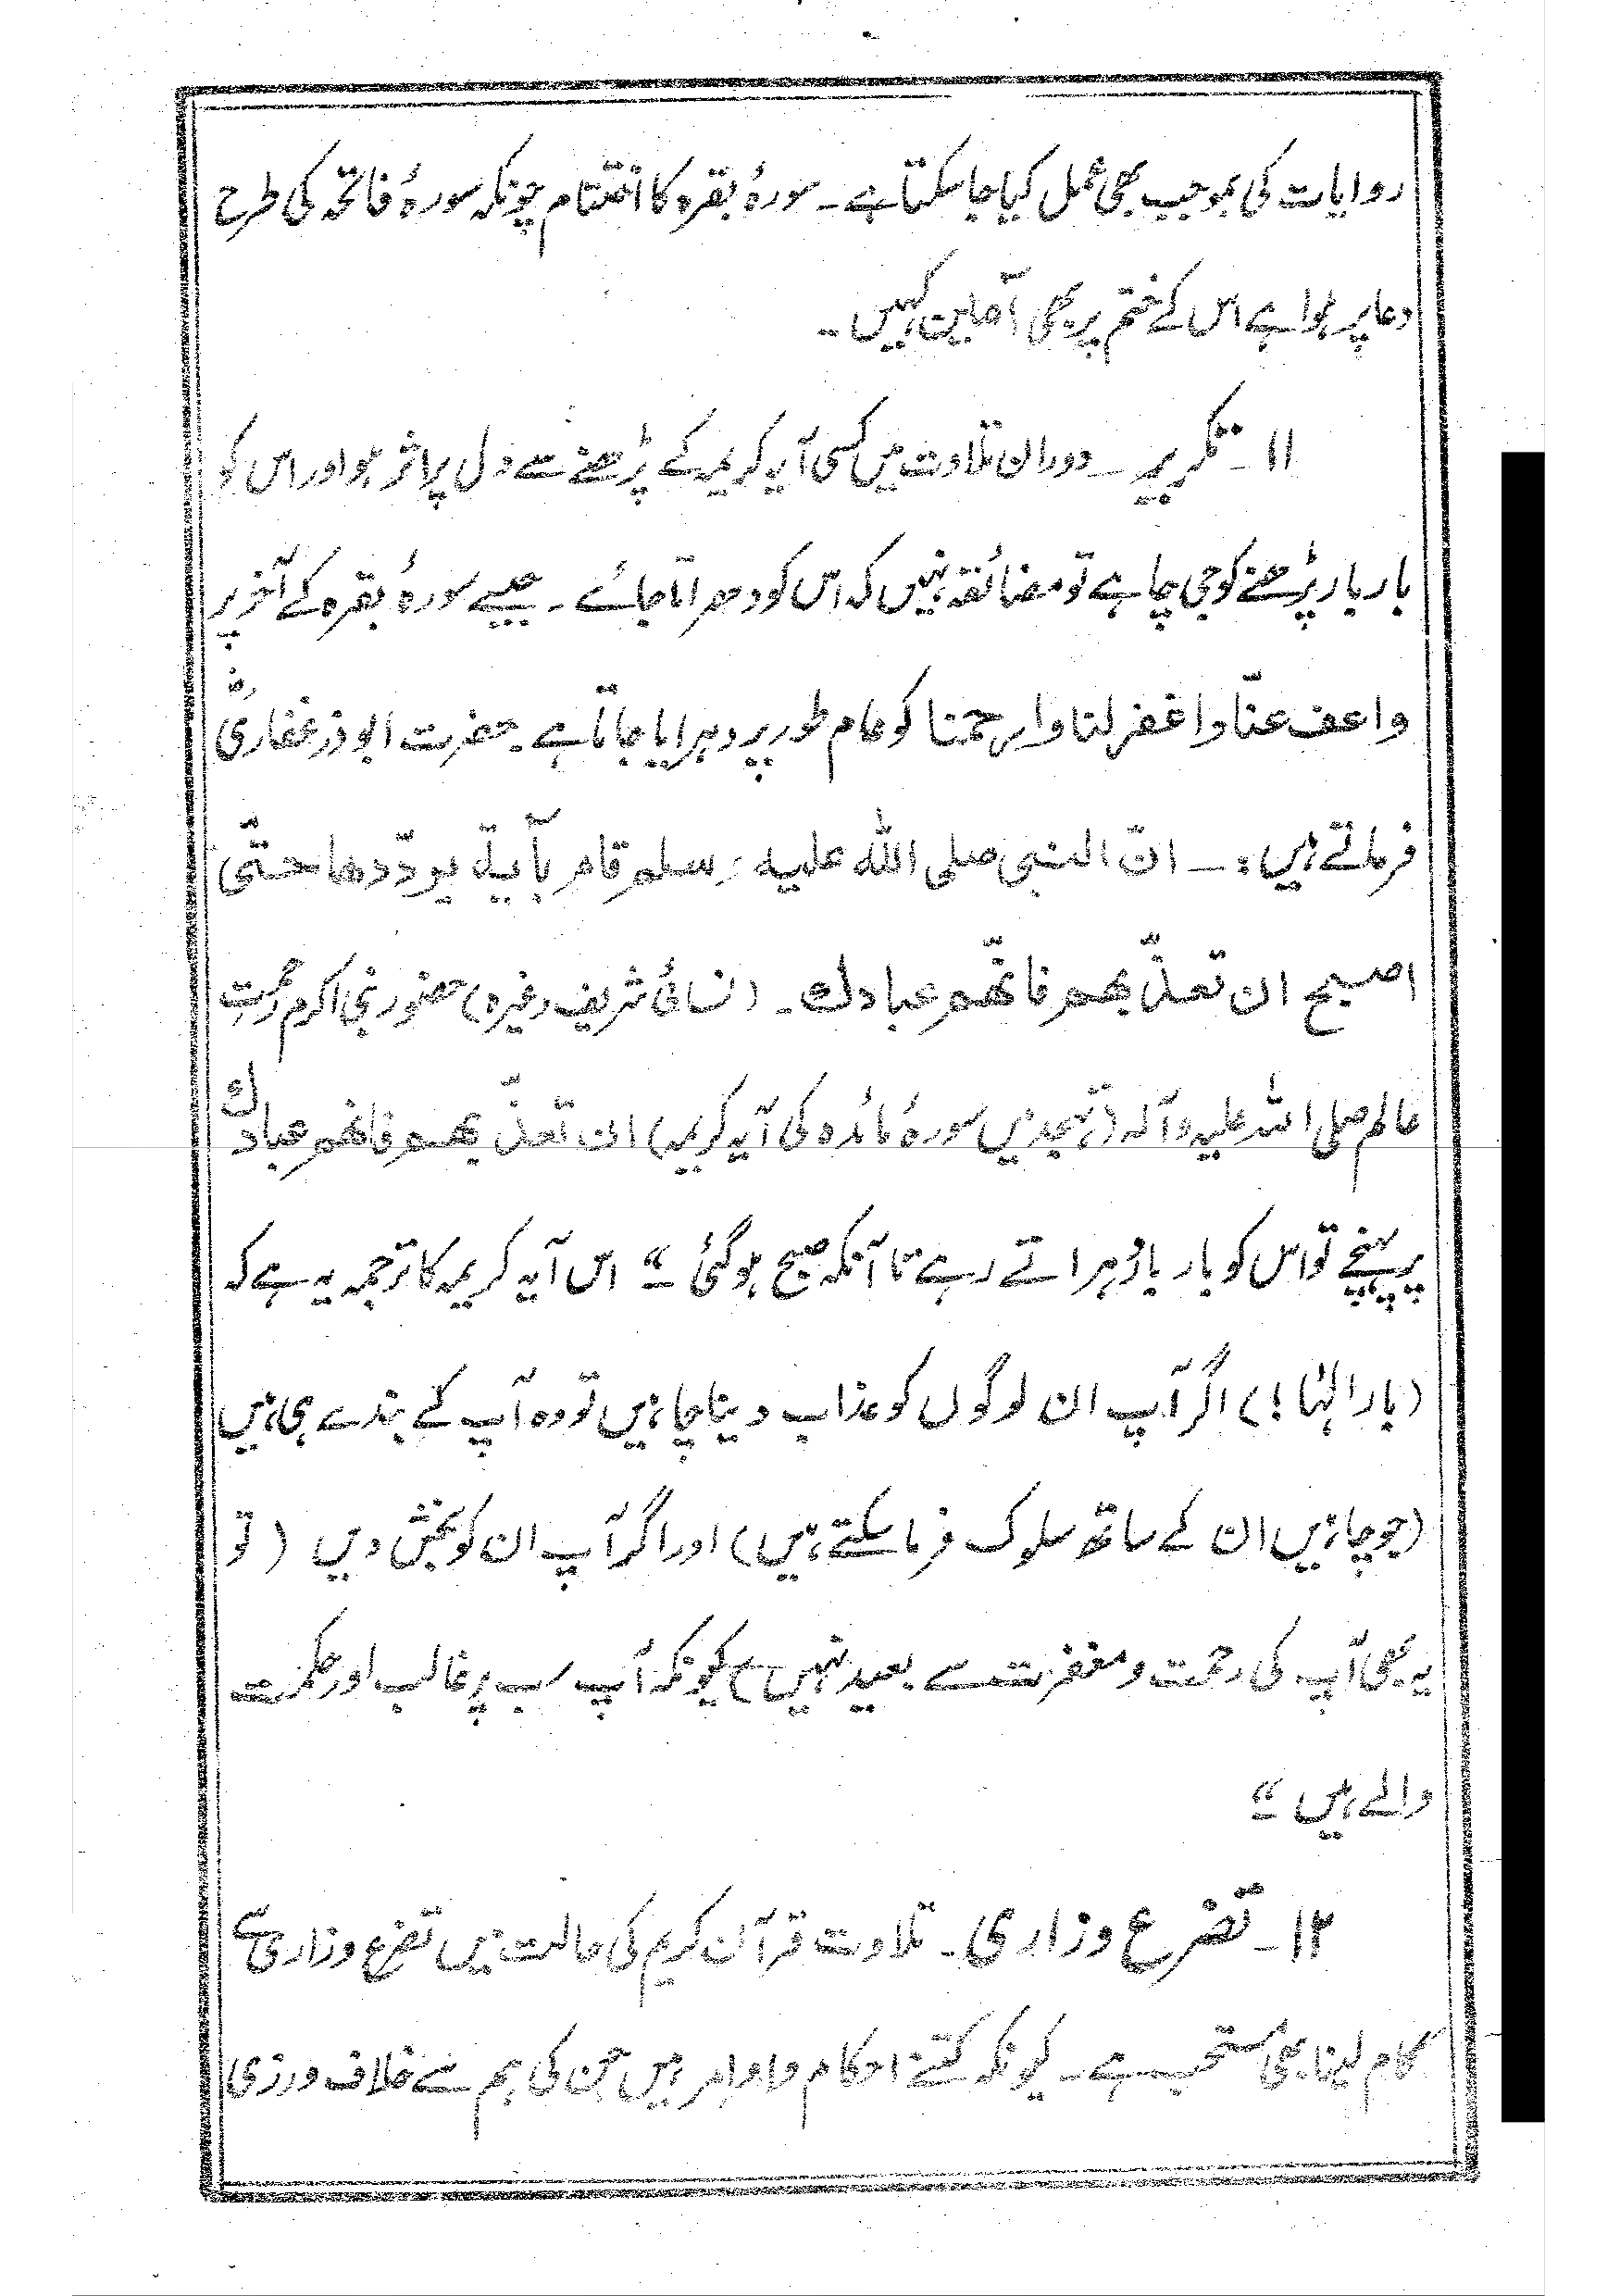 روایات کی بموجب بھی عمل کیا جا سکتا ہے ۔ سورۂ بقرہ کا اختتام چونکہ سورۂ فاتحہ کی طرح
دعا پر ہوا ہے اس کے ختم پر بھی آمین کہیں ۔
۱۱ ۔ تکریر ۔ دوران تلاوت میں کسی آیہ کریمہ کے پڑھنے سے دل پر اثر ہو اور اس کو
بار بار پڑھنے کو جی چاہے تو مضائقہ نہیں کہ اس کو دھرایا جائے ۔ جیسے سورۂ بقرہ کے آخر پر
واعف عنّا واغفر لنا وارحمنا کو عام طور پر دہرایا جاتا ہے ۔ حضرت ابوذر غفاریؓ
فرماتے ہیں :۔ انّ النبی صلی اللہ علیہ وسلم قام بآیۃ یردّدھا حتّی
اصبح ان تعذّبھم فانّھم عبادك ۔ (نسائی شریف وغیرہ) حضور نبی اکرم رحمت
عالم صلی اللہ علیہ وآلہ (تہجد میں سورۂ مائدہ کی آیہ کریمہ) ان تعذّبھم فانّھم عبادك
پر پہنچے تو اس کو بار بار دُہراتے رہے تا آنکہ صبح ہو گئی ۔“ اس آیہ کریمہ کا ترجمہ یہ ہے کہ
(بار الٰہا !) اگر آپ ان لوگوں کو عذاب دینا چاہیں تو وہ آپ کے بندے ہی ہیں
(جو چاہیں ان کے ساتھ سلوک فرما سکتے ہیں) اور اگر آپ ان کو بخش دیں (تو
یہ بھی آپ کی رحمت و مغفرت سے بعید نہیں) کیونکہ آپ سب پر غالب اور حکمت
والے ہیں ۔“
۱۲ ۔ تضرع وزاری ۔ تلاوت قرآن کریم کی حالت میں تضرع وزاری سے
کام لینا بھی مستحب ہے ۔ کیونکہ کتنے احکام و اوامر ہیں جن کی ہم نے خلاف ورزی